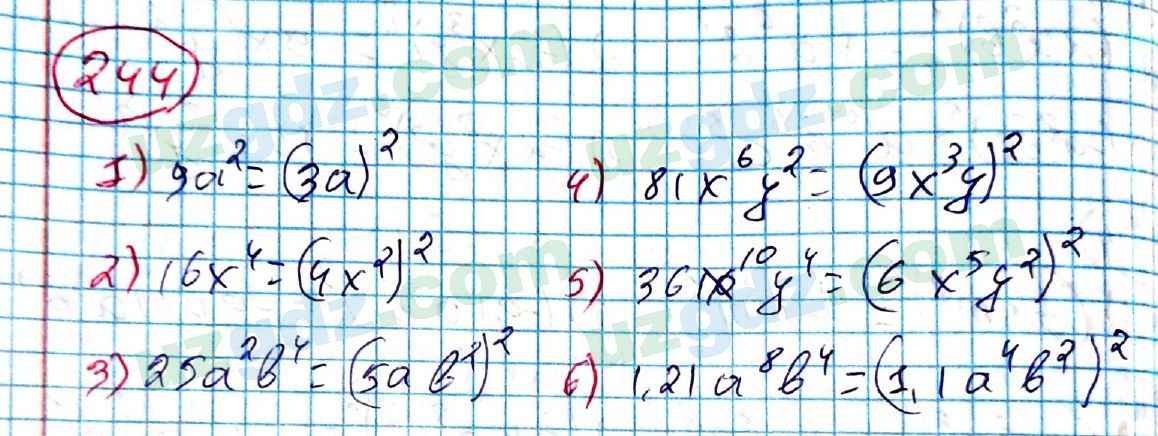 244
1) 9a² = (3a)²
2) 16x⁴ = (4x²)²
3) 25a²b⁴ = (5ab²)²
4) 81x⁶y² = (9x³y)²
5) 36x¹⁰y⁴ = (6x⁵y²)²
6) 1,21a⁸b⁴ = (1,1a⁴b²)²
uzgdz.com
uzgdz.com
uzgdz.com
uzgdz.com